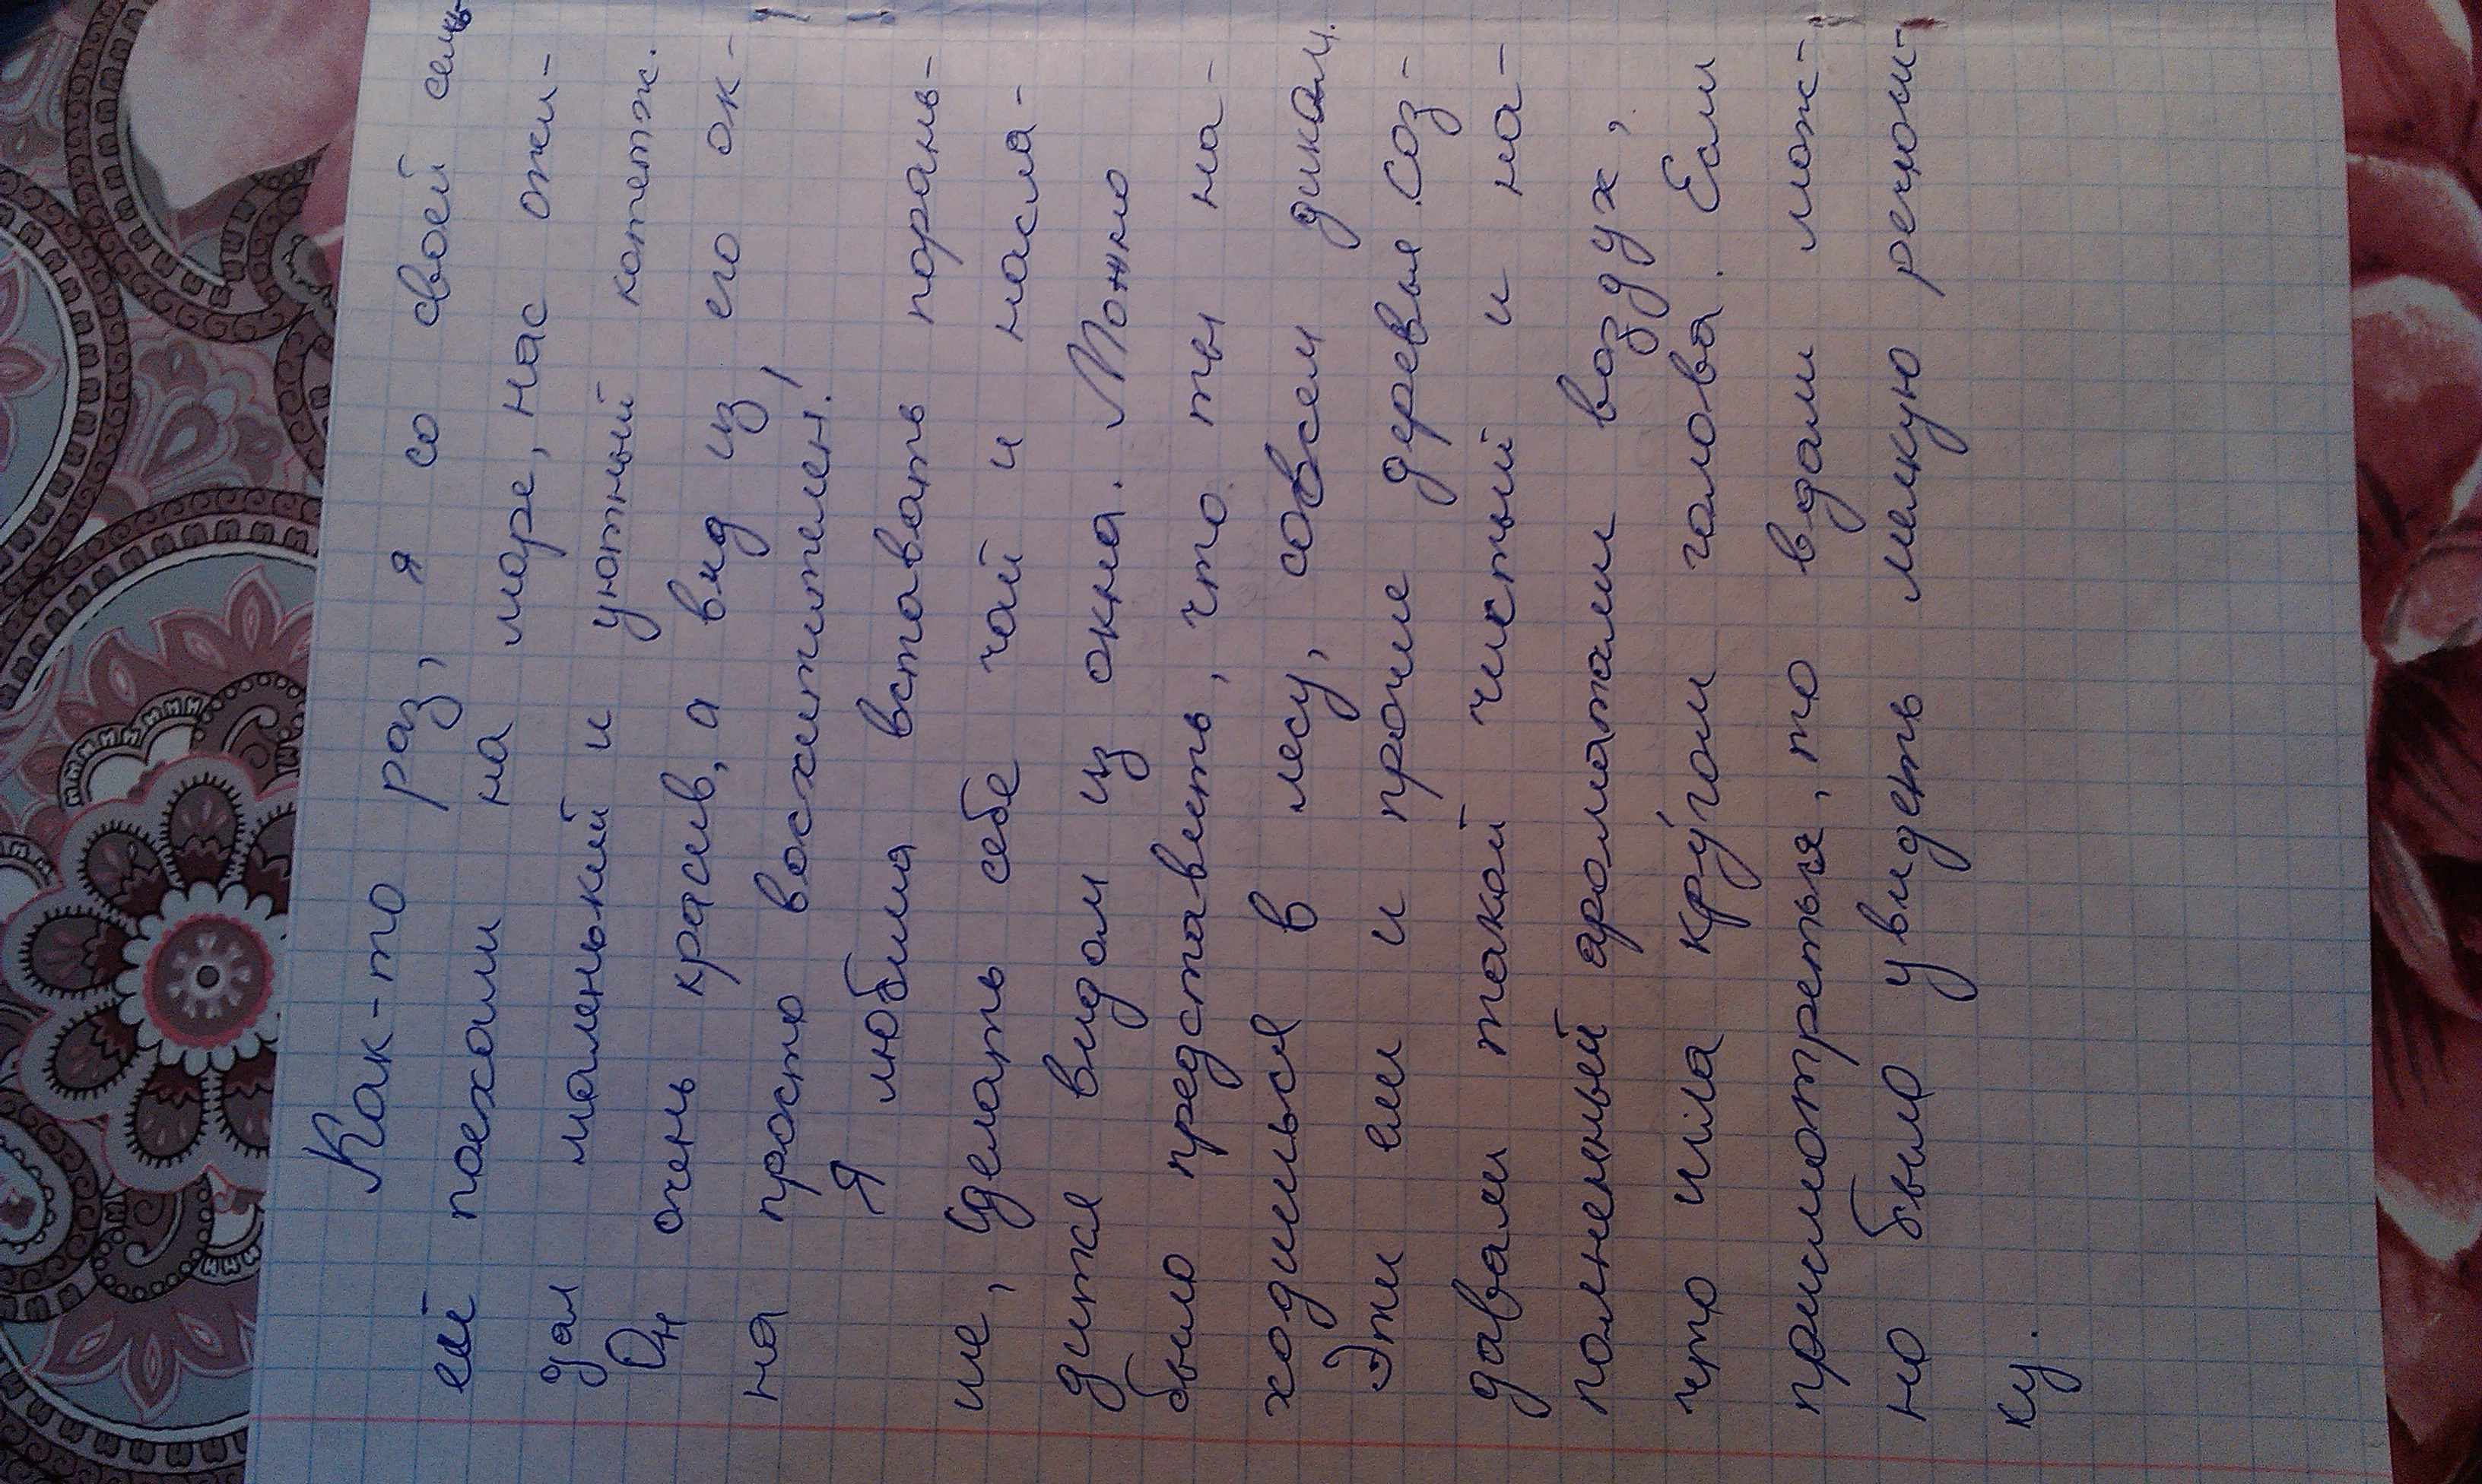 Как-то раз, я со своей семь-
ей поехали на море, нас ожи-
дал маленький и уютный котетж.
Он очень красив, а вид из его ок-
на просто восхитителен!
Я любила вставать порань-
ше, сделать себе чай и насла-
дится видом из окна. Можно
было представить, что ты на-
ходишься в лесу, совсем диком.
Эти ели и прочие деревья соз-
давали такой чистый и на-
полненный ароматами воздух,
что шла кру́гом голова. Если
присмотреться, то вдали мож-
но было увидеть мелкую речюш-
ку.